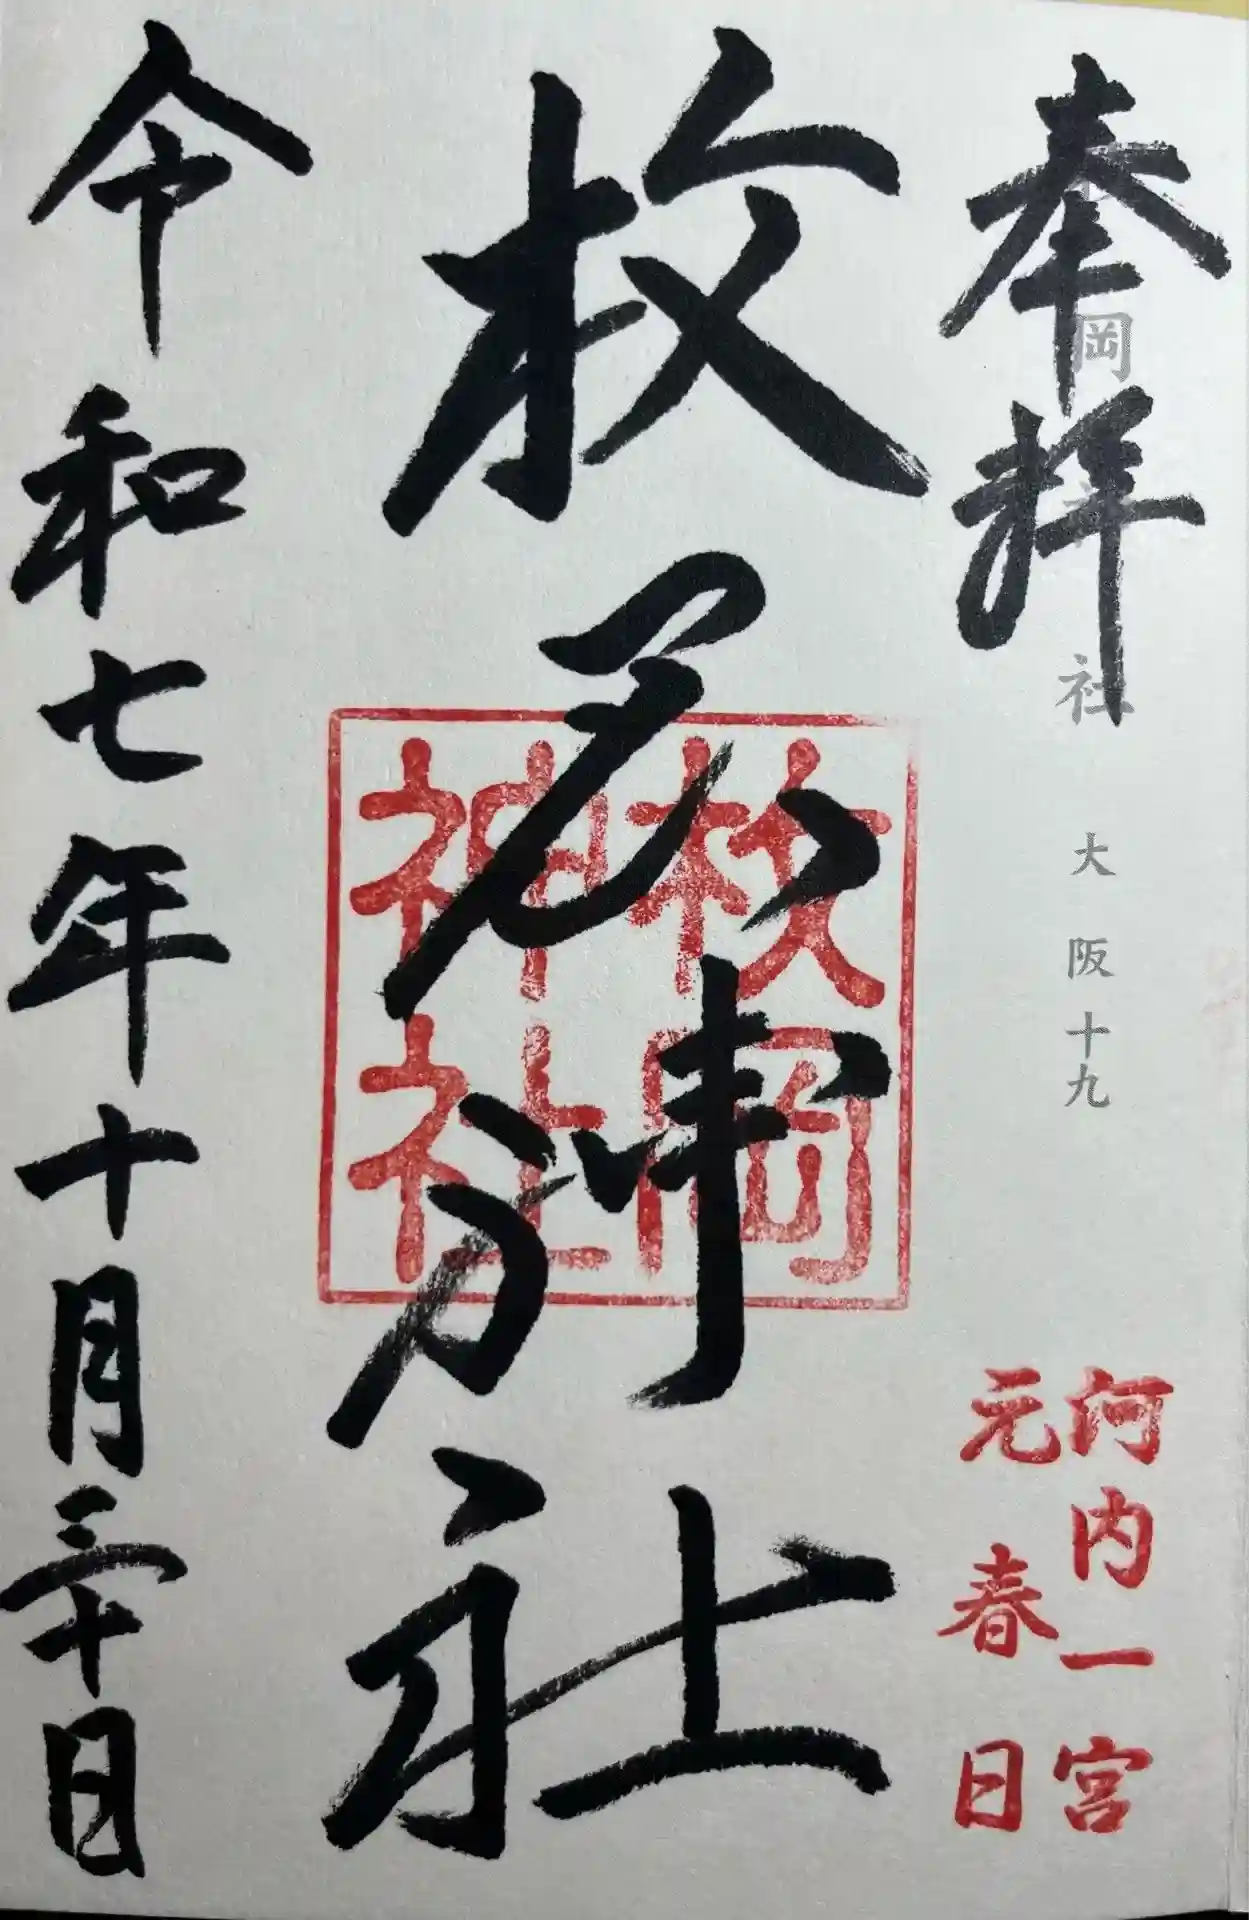 奉拝
枚岡神社 大阪十九
河内一宮
元春日
枚岡神社
枚岡
神社
令和七年十月三十日